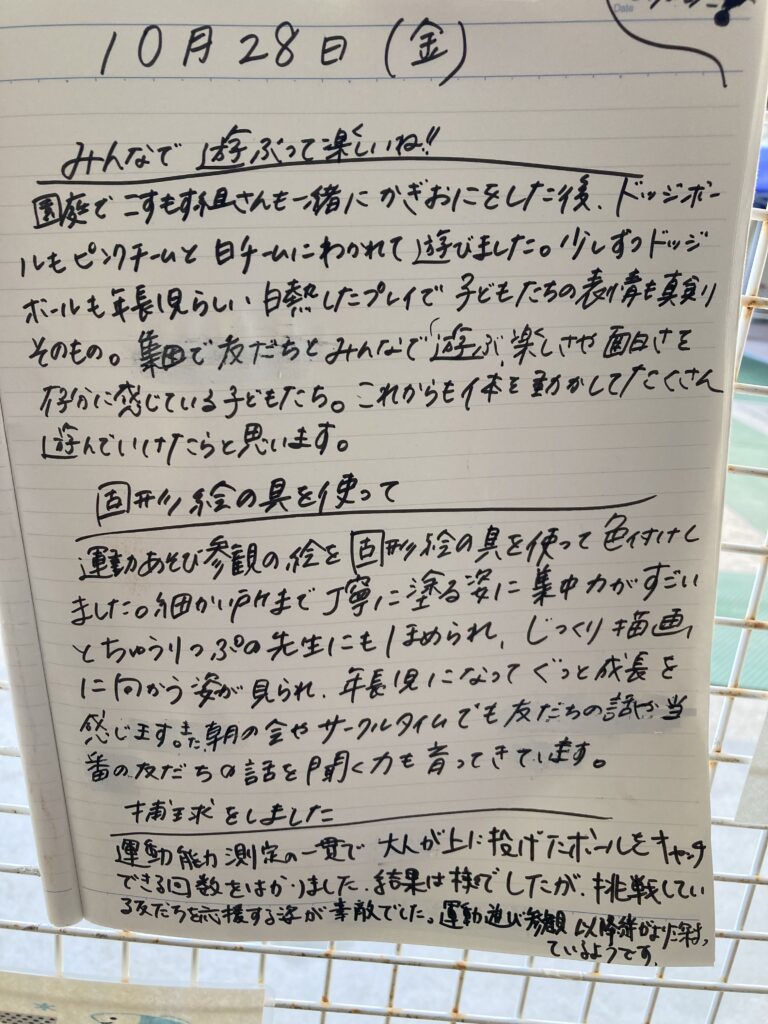 Date
10月28日(金)
みんなで遊ぶって楽しいね!!
園庭でこすもす組さんも一緒にかぎおにをした後、ドッジボー
ルもピンクチームと白チームにわかれて遊びました。少しずつドッジ
ボールも年長児らしい白熱したプレイで子どもたちの表情も真剣
そのもの。集団で友だちとみんなで遊ぶ楽しさや面白さを
存分に感じている子どもたち。これからも体を動かしてたくさん
遊んでいけたらと思います。
固形絵の具を使って
運動あそび参観の絵を固形絵の具を使って色付けし
ました。細かい所まで丁寧に塗る姿に集中力がすごい
とちゅうりっぷの先生にもほめられ、じっくり描画
に向かう姿が見られ、年長児になってぐっと成長を
感じます。また、朝の会やサークルタイムでも友だちの話や当
番の友だちの話を聞く力も育ってきています。
捕球をしました
運動能力測定の一貫で大人が上に投げたボールをキャッチ
できる回数をはかりました。結果は様々でしたが、挑戦してい
る友だちを応援する姿が素敵でした。運動遊び参観以降絆がより深まっ
ているようです。